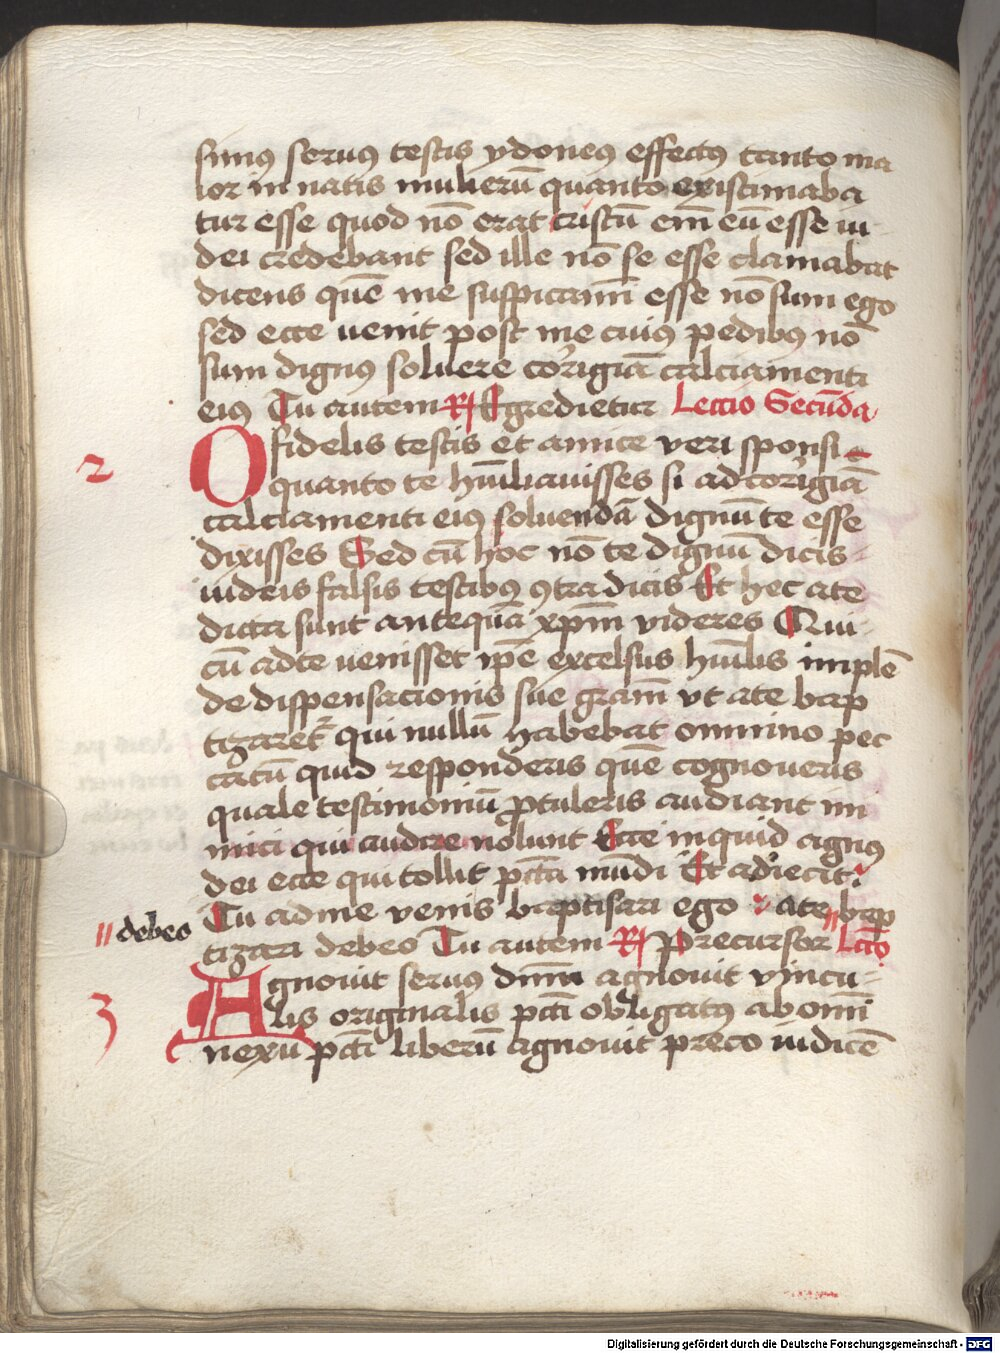 simus seruus testis ydoneus effectus tanto ma
ior in natis mulierū quanto existimaba
tur esse quod nō erat cristū em̄ eū esse iu-
dei credebant sed ille nō se esse clamabat
dicens quē me suspicamī esse nō sum ego
sed ecce uenit post me cuius pedibus nō
sum dignus soluere corrigiā calciamenti
eius Tu autem R Egredietur Leccio Secūda
2
O fidelis testis et amice veri sponsi
quanto te hūiliauisses si ad corrigiā
calciamenti eius soluendā dignū te esse
dixisses Sed cū hoc nō te dignū dicis-
iudeis falsis testibus ꝯtradicis Et hec a te
dicta sunt antequā xp̄m videres Qui-
cū ad te uenisset ip̄e excelsus hūilis implē
de dispensacionis sue grām vt a te bap
tizaretʳ qui nullū habebat omnino pec
catū quid responderis quē cognoueris
quale testimoniū ꝓtuleris audiant ini
mici qui audire nolunt Ecce inquid agnus
dei ecce qui tollit pc̄ta mūdi Et adiecit
Tu ad me venis baptisari ego a te // bap
// debeo
tizari debeo Tu autem R Precursor Lc̄cō
3
Agnouit seruus dn̄m agnouit vincu-
lis originalis pc̄ti obligatus ab omī
nexu pc̄ti liberū agnouit preco iudicē
Digitalisierung gefördert durch die Deutsche Forschungsgemeinschaft - DFG